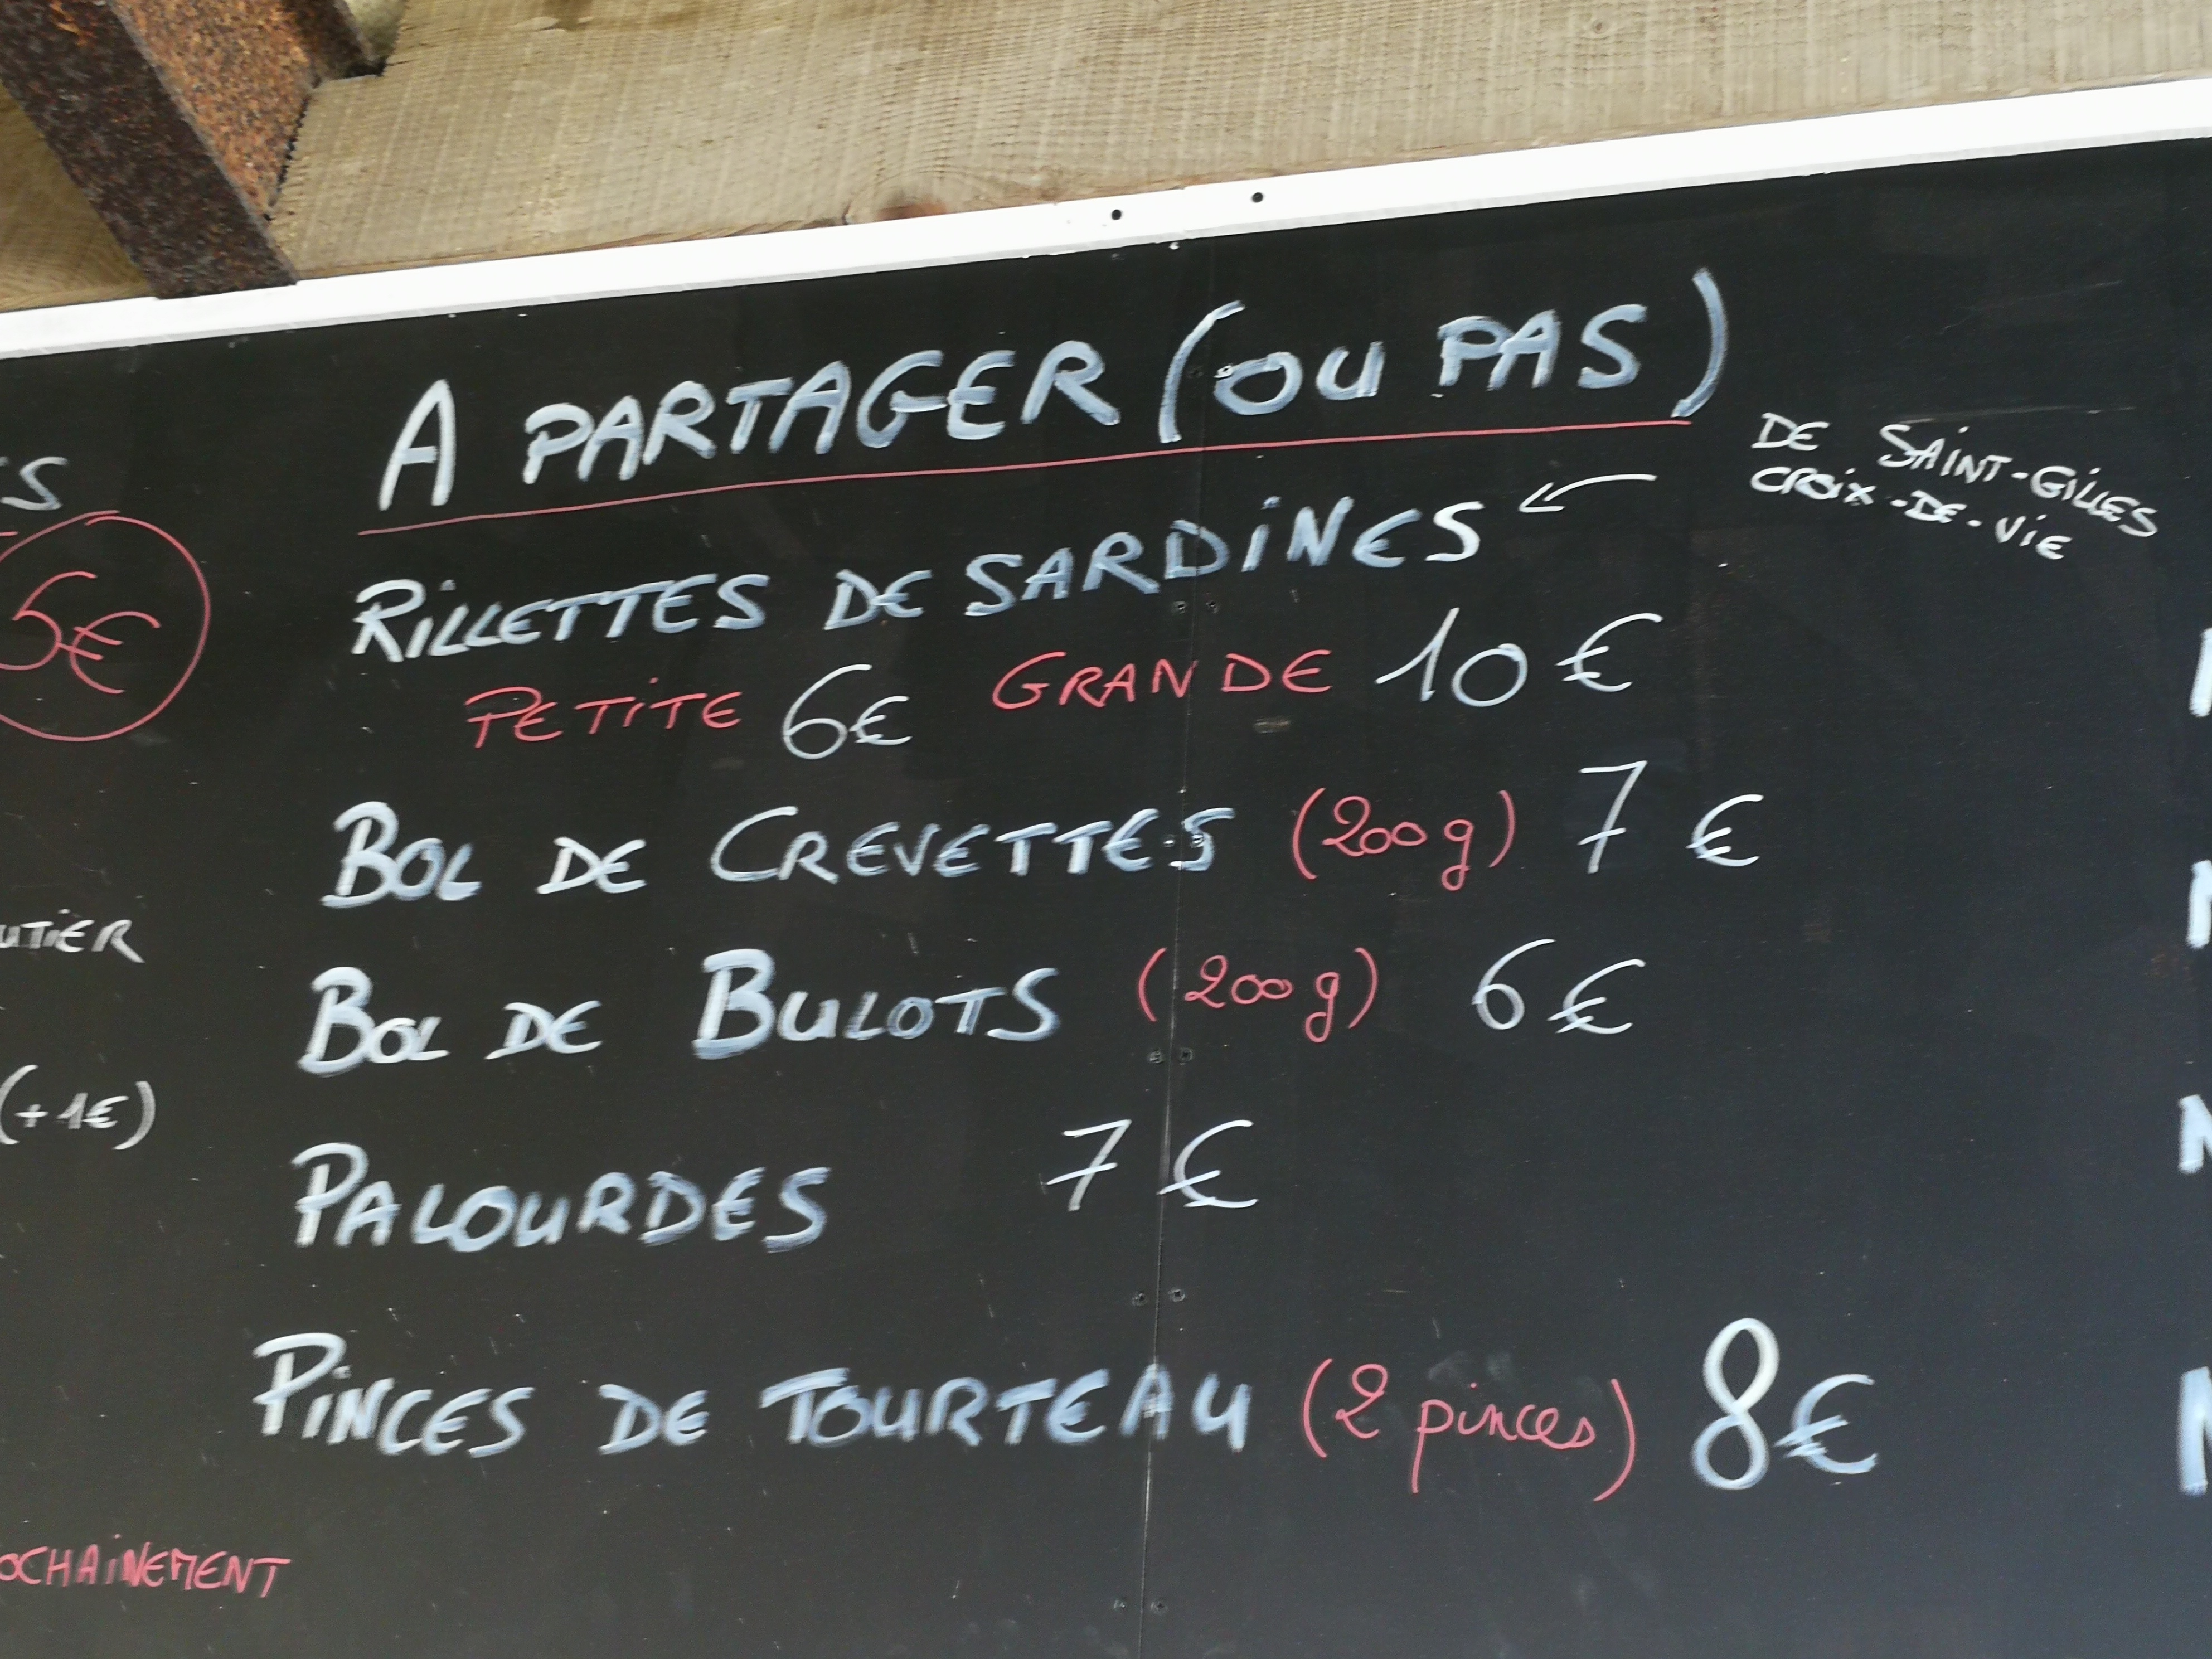 A PARTAGER (OU PAS)
RILLETTES DE SARDINES
DE SAINT-GILLES
CROIX-DE-VIE
PETITE 6€ GRANDE 10€
BOL DE CREVETTES (200g) 7€
BOL DE BULOTS (200g) 6€
PALOURDES 7€
PINCES DE TOURTEAU (2 pinces) 8€
5€
(+1€)